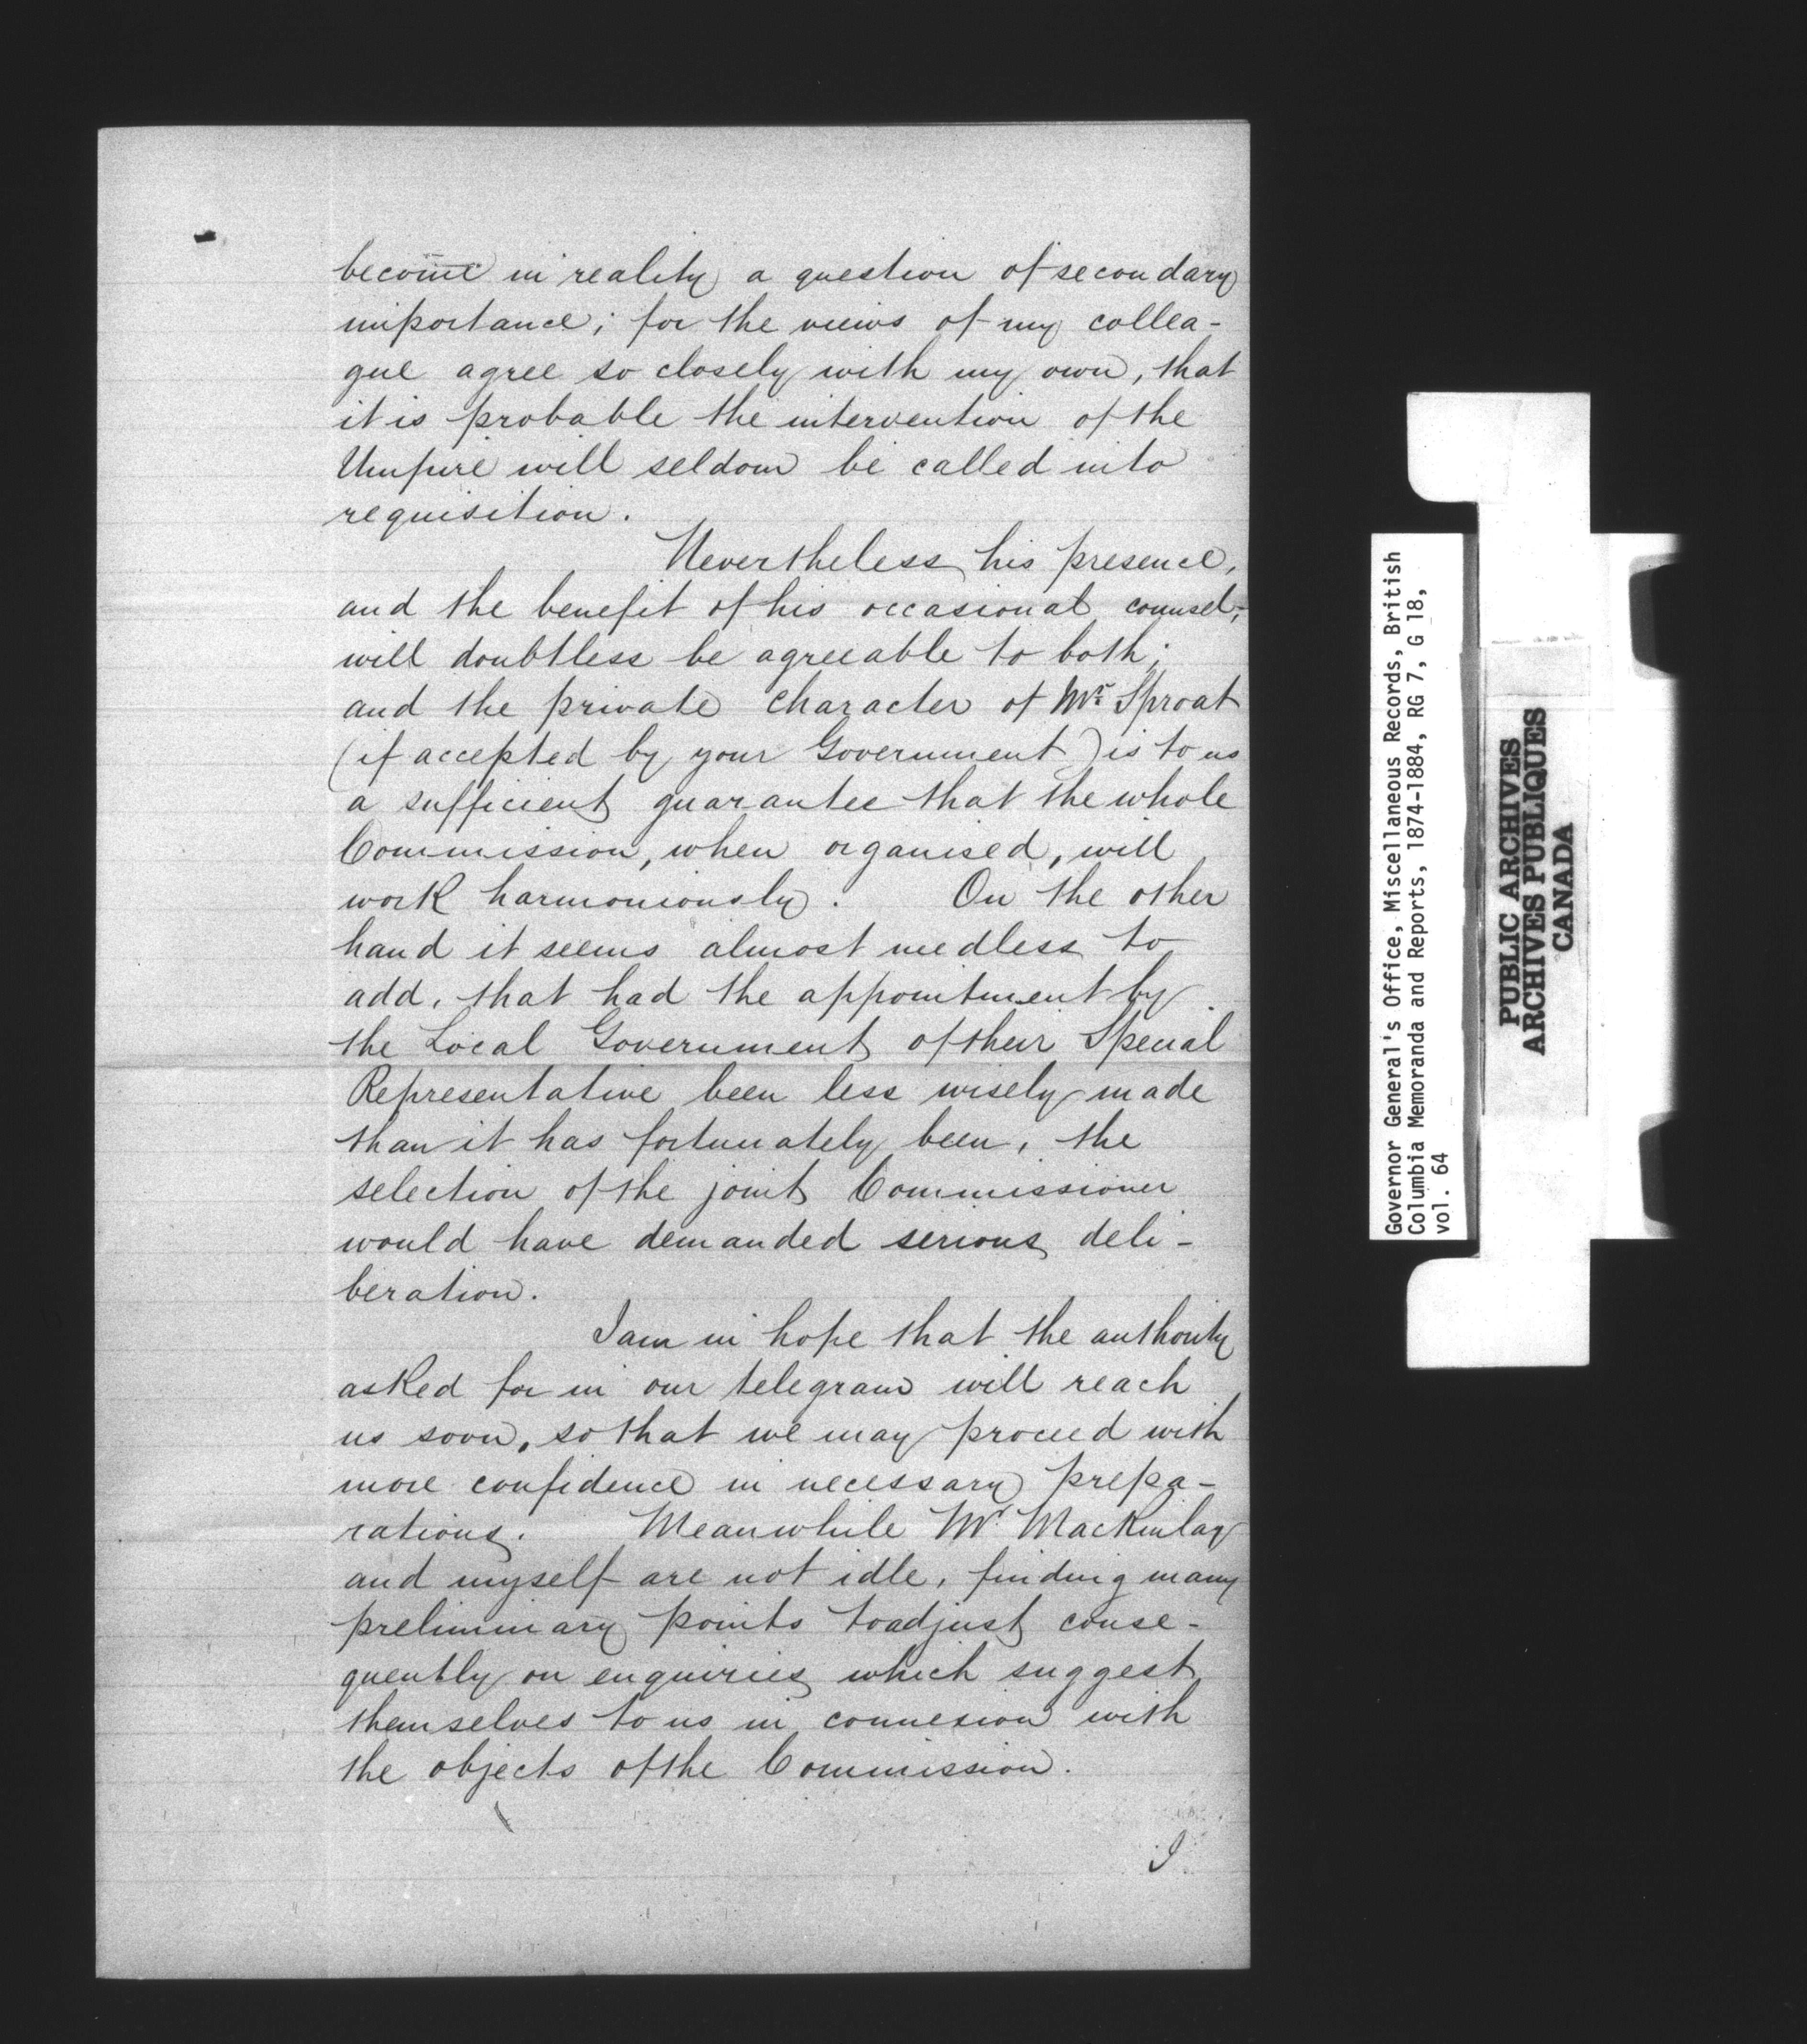 become in reality a question of secondary
importance; for the views of my collea-
gue agree so closely with my own, that
it is probable the intervention of the
Umpire will seldom be called into
requisition.
Nevertheless his presence,
and the benefit of his occasional counsel,
will doubtless be agreeable to both;
and the private character of Mr. Sproat
(if accepted by your Government) is to us
a sufficient guarantee that the whole
Commission, when organised, will
work harmoniously. On the other
hand it seems almost needless to
add, that had the appointment by
the Local Government of their Special
Representative been less wisely made
than it has fortunately been, the
selection of the joint Commissioner
would have demanded serious deli-
beration.
I am in hope that the authority
asked for in our telegram will reach
us soon, so that we may proceed with
more confidence in necessary prepa-
rations. Meanwhile Mr. Mackinlay
and myself are not idle, finding many
preliminary points to adjust conse-
quently on enquiries which suggest
themselves to us in connexion with
the objects of the Commission.
I
Governor General's Office, Miscellaneous Records, British
Columbia Memoranda and Reports, 1874-1884, RG 7, G 18,
vol. 64
PUBLIC ARCHIVES
ARCHIVES PUBLIQUES
CANADA